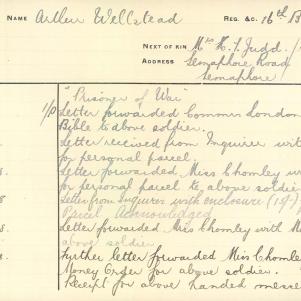 NAME Arthur Wellstead REG. &C. 16th B
NEXT OF KIN Mrs H. F. Judd.
ADDRESS Semaphore Road
Semaphore
"Prisoner of War"
Letter forwarded Commrs London
Bible to above soldier.
Letter received from Inquirer with
for personal parcel.
Letter forwarded Miss Chomley with
for personal parcel to above soldier
Letter from Inquirer with enclosure (1gf)
Parcel Acknowledged
Letter forwarded Miss Chomley with M
above soldier
Further letter forwarded Miss Chomley
Money Order for above soldier.
Receipt for above handed